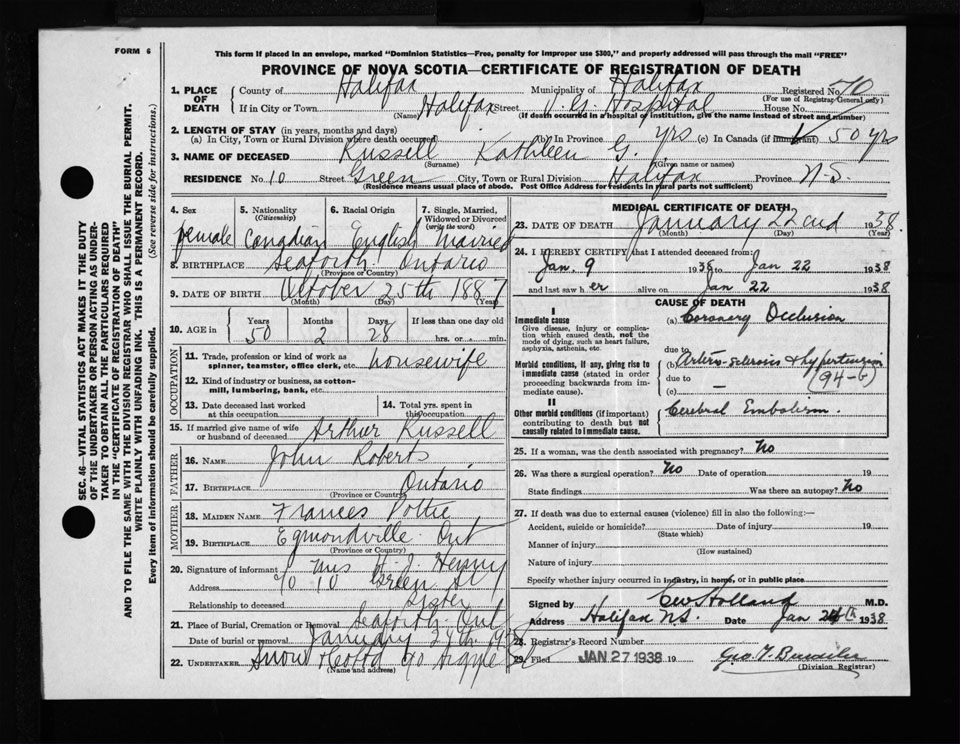 FORM 6
This form if placed in an envelope, marked "Dominion Statistics—Free, penalty for improper use $300," and properly addressed will pass through the mail "FREE"
PROVINCE OF NOVA SCOTIA—CERTIFICATE OF REGISTRATION OF DEATH
1. PLACE OF DEATH County of Halifax Municipality of Halifax Registered No.
(For use of Registrar General only)
If in City or Town Halifax Street V. G. Hospital House No.
(Name) (If death occurred in a hospital or institution, give the name instead of street and number)
2. LENGTH OF STAY (in years, months and days)
(a) In City, Town or Rural Division where death occurred (b) in Province yrs (c) in Canada (if immigrant) 50 yrs
3. NAME OF DECEASED Russell Kathleen G.
(Surname) (Given name or names)
RESIDENCE No. 10 Street Green City, Town or Rural Division Halifax Province N.S.
(Residence means usual place of abode. Post Office Address for residents in rural parts not sufficient)
SEC. 46—VITAL STATISTICS ACT MAKES IT THE DUTY
OF THE UNDERTAKER OR PERSON ACTING AS UNDER-
TAKER TO OBTAIN ALL THE PARTICULARS REQUIRED
IN THE "CERTIFICATE OF REGISTRATION OF DEATH"
AND TO FILE THE SAME WITH THE DIVISION REGISTRAR WHO SHALL ISSUE THE BURIAL PERMIT.
WRITE PLAINLY WITH UNFADING INK. THIS IS A PERMANENT RECORD.
Every item of information should be carefully supplied. (See reverse side for instructions.)
4. Sex Female
5. Nationality (Citizenship) Canadian
6. Racial Origin English
7. Single, Married, Widowed or Divorced (write the word) Married
8. BIRTHPLACE Seaforth Ontario
(Province or Country)
9. DATE OF BIRTH October 25th 1887
(Month) (Day) (Year)
10. AGE in Years 50 Months 2 Days 28 If less than one day old hrs. or m.
OCCUPATION
11. Trade, profession or kind of work as spinner, teamster, office clerk, etc. housewife
12. Kind of industry or business, as cotton-mill, lumbering, bank, etc.
13. Date deceased last worked at this occupation
14. Total yrs. spent in this occupation
15. If married give name of wife or husband of deceased Arthur Russell
FATHER
16. NAME John Roberts
17. BIRTHPLACE Ontario
(Province or Country)
MOTHER
18. MAIDEN NAME Frances Pottie
19. BIRTHPLACE Egmondville Ont
(Province or Country)
20. Signature of informant Mrs H. J.
Address 10 Green St
Relationship to deceased Sister
21. Place of Burial, Cremation or Removal Seaforth Ont
Date of burial or removal January
22. UNDERTAKER Snow Argyle St
(Name and address)
MEDICAL CERTIFICATE OF DEATH
23. DATE OF DEATH January 22 1938.
(Month) (Day) (Year)
24. I HEREBY CERTIFY that I attended deceased from:
Jan. 9 1938 to Jan 22 1938
and last saw her alive on Jan 22 1938
CAUSE OF DEATH
I
Immediate cause
Give disease, injury or complication which caused death, not the mode of dying, such as heart failure, asphyxia, asthenia, etc.
(a) Coronary Occlusion
due to
Morbid conditions, if any, giving rise to immediate cause (stated in order proceeding backwards from immediate cause).
(b) Arterio-sclerosis & hypertension
due to (94-b)
(c) —
II
Other morbid conditions (if important) contributing to death but not causally related to immediate cause.
Cerebral Embolism.
25. If a woman, was the death associated with pregnancy? No
26. Was there a surgical operation? No Date of operation 19
State findings Was there an autopsy? No
27. If death was due to external causes (violence) fill in also the following:—
Accident, suicide or homicide? Date of injury 19
(State which)
Manner of injury
(How sustained)
Nature of injury
Specify whether injury occurred in industry, in home, or in public place
Signed by Holland M.D.
Address Halifax N.S. Date Jan 24th 1938
28. Registrar's Record Number
29. Filed JAN 27 1938 19
(Division Registrar)